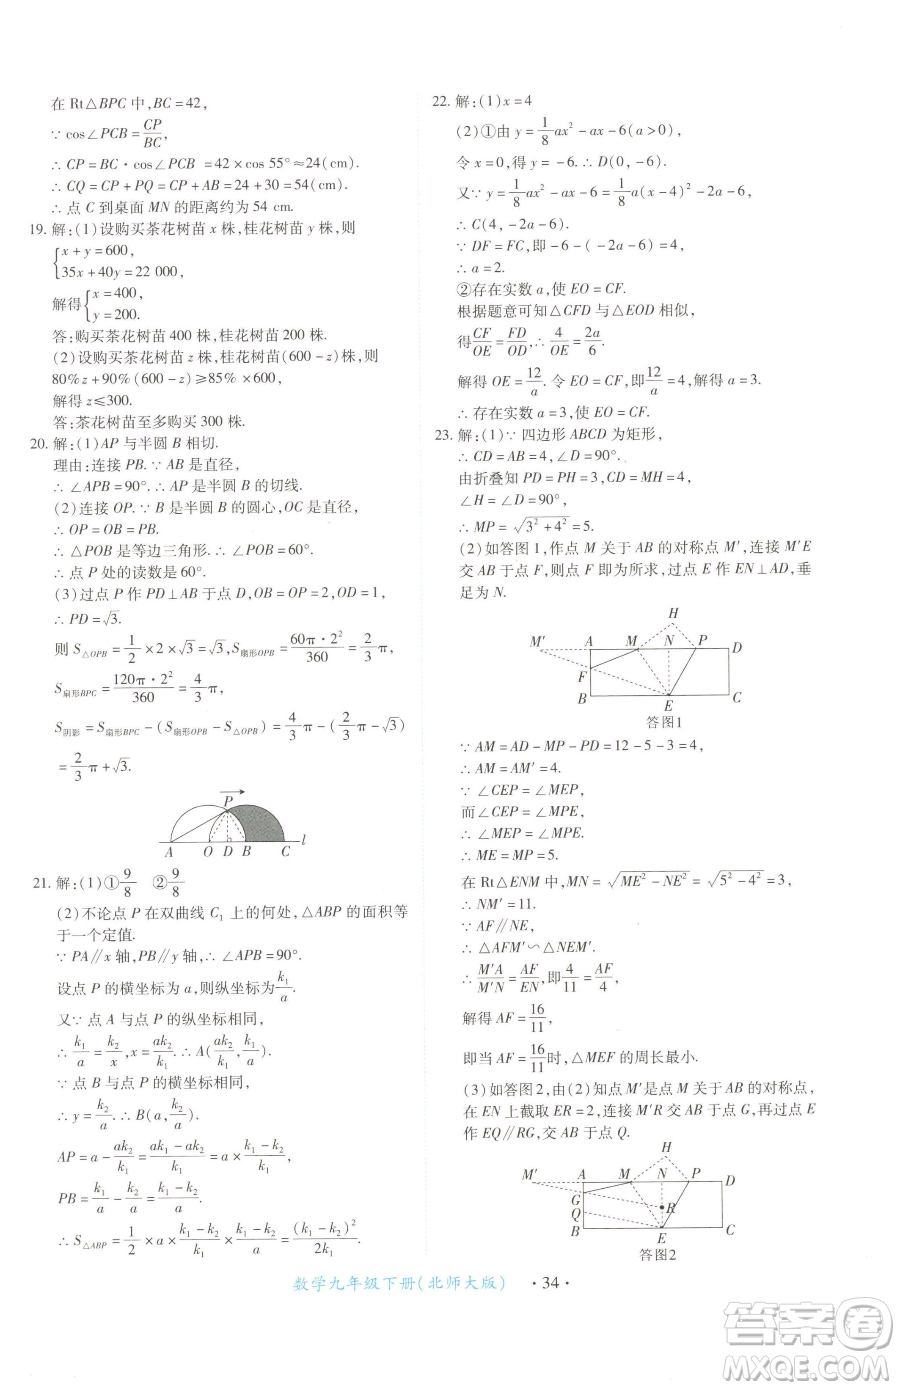 在 Rt△BPC 中,BC=42,
∵cos∠PCB=CP/BC,
∴CP=BC·cos∠PCB=42×cos 55°≈24(cm).
∴CQ=CP+PQ=CP+AB=24+30=54(cm).
∴点 C 到桌面 MN 的距离约为 54 cm.
19. 解:(1)设购买茶花树苗 x 株,桂花树苗 y 株,则
{x+y=600,
35x+40y=22 000,
解得{x=400,
y=200.
答:购买茶花树苗 400 株,桂花树苗 200 株.
(2)设购买茶花树苗 z 株,桂花树苗(600-z)株,则
80%z+90%(600-z)≥85%×600,
解得 z≤300.
答:茶花树苗至多购买 300 株.
20. 解:(1)AP 与半圆 B 相切.
理由:连接 PB.∵AB 是直径,
∴∠APB=90°.∴AP 是半圆 B 的切线.
(2)连接 OP.∵B 是半圆 O 的圆心,OC 是直径,
∴OP=OB=PB.
∴△POB 是等边三角形.∴∠POB=60°.
∴点 P 处的读数是 60°.
(3)过点 P 作 PD⊥AB 于点 D,OB=OP=2,OD=1,
∴PD=√3.
则 S△OPB=1/2×2×√3=√3,S扇形OPB=60π·2²/360=2/3π,
S扇形BPC=120π·2²/360=4/3π,
S阴影=S扇形BPC-(S扇形OPB-S△OPB)=4/3π-(2/3π-√3)
=2/3π+√3.
P
A O D B C l
21. 解:(1)①9/8 ②9/8
(2)不论点 P 在双曲线 C₁ 上的何处,△ABP 的面积等
于一个定值.
∵PA∥x 轴,PB∥y 轴,∴∠APB=90°.
设点 P 的横坐标为 a,则纵坐标为k₁/a.
又∵点 A 与点 P 的纵坐标相同,
∴k₁/a=k₂/x,x=ak₂/k₁.∴A(ak₂/k₁,k₁/a).
∵点 B 与点 P 的横坐标相同,
∴y=k₂/a.∴B(a,k₂/a).
AP=a-ak₂/k₁=(ak₁-ak₂)/k₁=a×(k₁-k₂)/k₁,
PB=k₁/a-k₂/a=(k₁-k₂)/a.
∴S△ABP=1/2×a×(k₁-k₂)/k₁×(k₁-k₂)/a=(k₁-k₂)²/2k₁.
22. 解:(1)x=4
(2)①由 y=1/8ax²-ax-6(a>0),
令 x=0,得 y=-6.∴D(0,-6).
又∵y=1/8ax²-ax-6=1/8a(x-4)²-2a-6,
∴C(4,-2a-6).
∵DF=FC,即-6-(-2a-6)=4,
∴a=2.
②存在实数 a,使 EO=CF.
根据题意可知△CFD 与△EOD 相似,
得CF/OE=FD/OD,∴4/OE=2a/6.
解得 OE=12/a.令 EO=CF,即12/a=4,解得 a=3.
∴存在实数 a=3,使 EO=CF.
23. 解:(1)∵四边形 ABCD 为矩形,
∴CD=AB=4,∠D=90°.
由折叠知 PD=PH=3,CD=MH=4,
∠H=∠D=90°,
∴MP=√(3²+4²)=5.
(2)如答图 1,作点 M 关于 AB 的对称点 M′,连接 M′E
交 AB 于点 F,则点 F 即为所求,过点 E 作 EN⊥AD,垂
足为 N.
H
M′ A M N P D
F
B E C
答图1
∵AM=AD-MP-PD=12-5-3=4,
∴AM=AM′=4.
∵∠CEP=∠MEP,
而∠CEP=∠MPE,
∴∠MEP=∠MPE.
∴ME=MP=5.
在 Rt△ENM 中,MN=√(ME²-NE²)=√(5²-4²)=3,
∴NM′=11.
∵AF∥NE,
∴△AFM′∽△NEM′.
∴M′A/M′N=AF/EN,即4/11=AF/4,
解得 AF=16/11,
即当 AF=16/11时,△MEF 的周长最小.
(3)如答图 2,由(2)知点 M′是点 M 关于 AB 的对称点,
在 EN 上截取 ER=2,连接 M′R 交 AB 于点 G,再过点 E
作 EQ∥RG,交 AB 于点 Q.
H
M′ A M N P D
G
Q R
B E C
答图2
数学九年级下册(北师大版) ·34·
答案圈
MXQE.COM